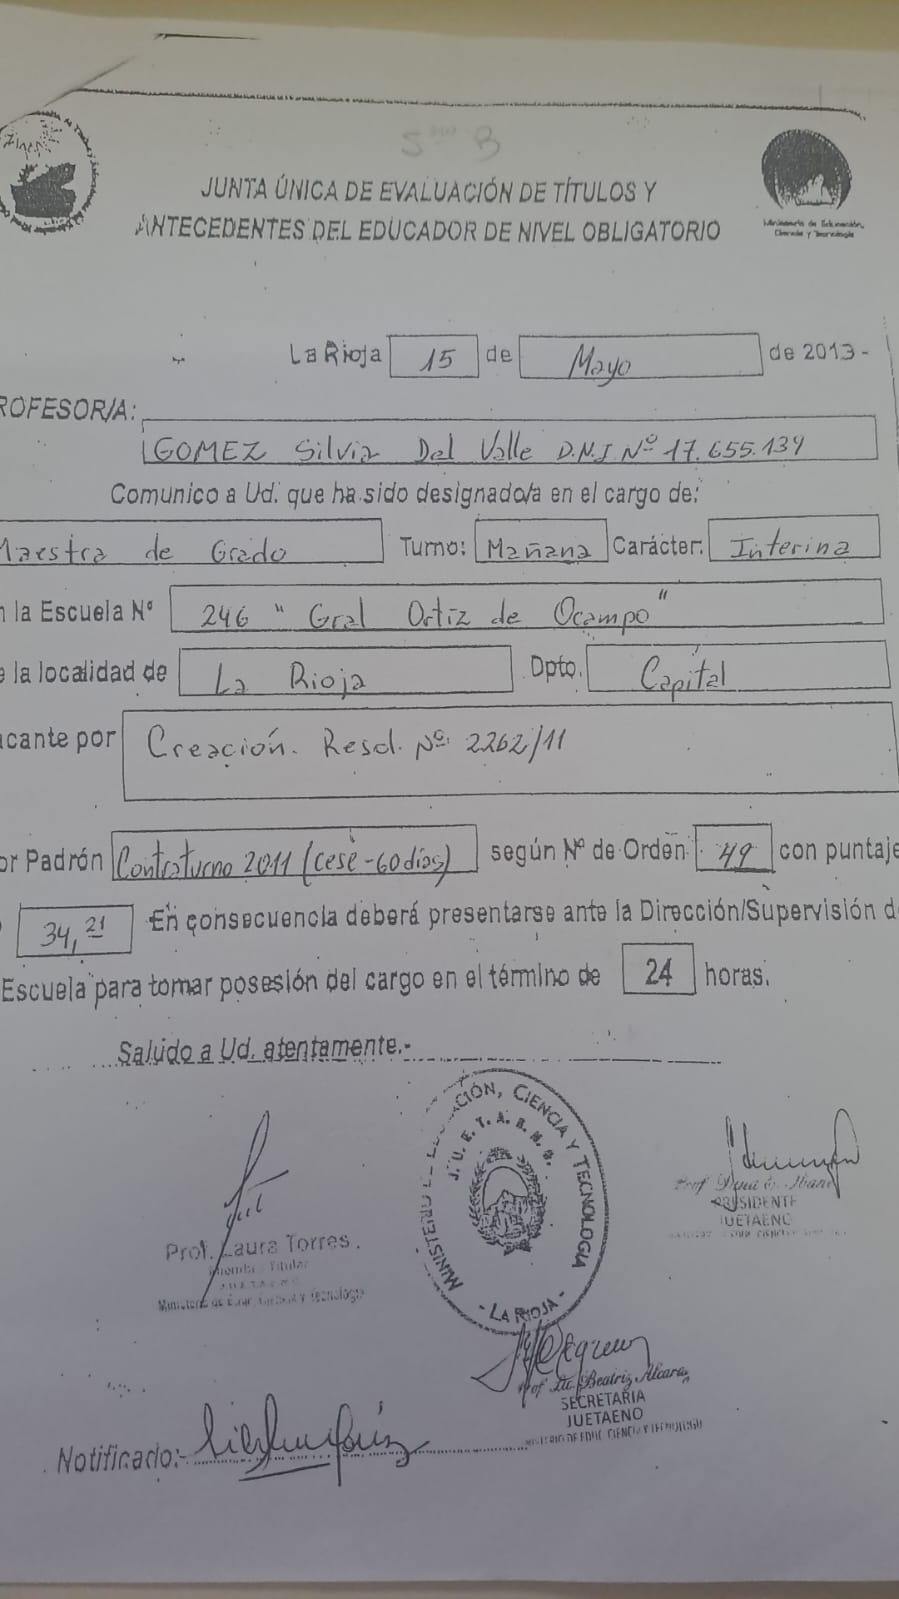 5to B
JUNTA ÚNICA DE EVALUACIÓN DE TÍTULOS Y
ANTECEDENTES DEL EDUCADOR DE NIVEL OBLIGATORIO
Ministerio de Educación,
Ciencia y Tecnología
La Rioja 15 de Mayo de 2013-
ROFESOR/A:
GOMEZ Silvia Del Valle D.N.I Nº 17.655.139
Comunico a Ud. que ha sido designado/a en el cargo de:
Maestra de Grado Turno: Mañana Carácter: Interina
n la Escuela Nº 246 " Gral Ortiz de Ocampo"
e la localidad de La Rioja Dpto. Capital
acante por Creación. Resol. Nº 2262/11
or Padrón Contraturno 2011 (cese-60días) según Nº de Orden 49 con puntaje
34,21 En consecuencia deberá presentarse ante la Dirección/Supervisión d
Escuela para tomar posesión del cargo en el término de 24 horas.
Saludo a Ud. atentamente.-
MINISTERIO DE EDUCACIÓN, CIENCIA Y TECNOLOGIA
J.U.E.T.A.E.N.O.
- LA RIOJA -
Prof. Laura Torres
Miembro Titular
Ministerio de Educ. Ciencia y Tecnología
PRESIDENTE
JUETAENO
Prof. Lic. Beatriz Alcaraz
SECRETARIA
JUETAENO
MINISTERIO DE EDUC. CIENCIA Y TECNOLOGIA
Notificado:-